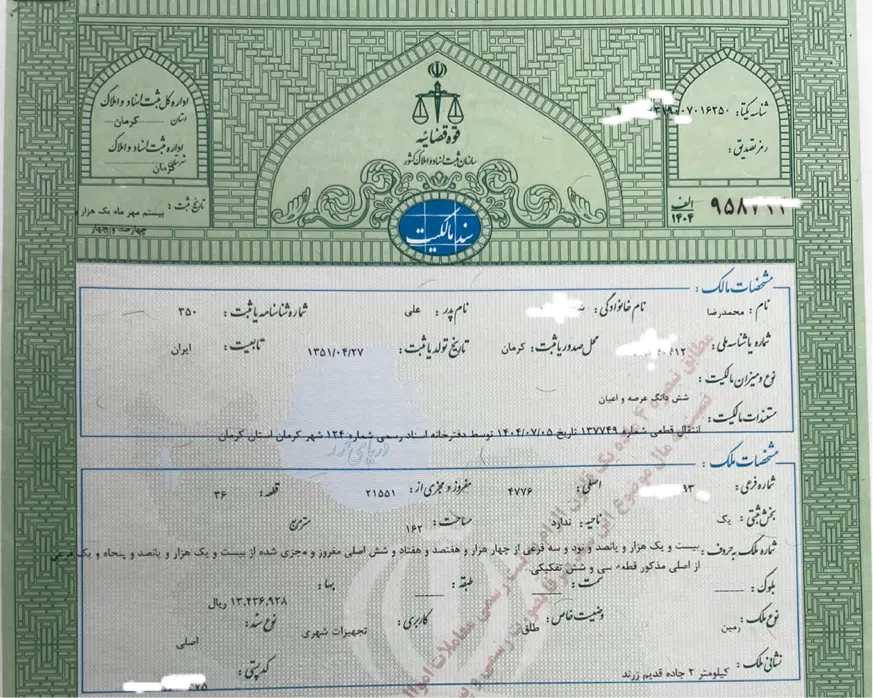 اداره کل ثبت اسناد و املاک
استان کرمان
اداره ثبت اسناد و املاک
شهرستان کرمان
تاریخ ثبت: بیستم مهر ماه یک هزار و
چهارصد و چهار
قوه قضائیه
سازمان ثبت اسناد و املاک کشور
سند مالکیت
شناسه یکتا: ۰۷۰۱۶۲۵۰
رمز تصدیق:
الف
۱۴۰۴
۹۵۸
مشخصات مالک:
نام: محمدرضا نام خانوادگی: نام پدر: علی شماره شناسنامه یا ثبت: ۳۵۰
شماره یا شناسه ملی: محل صدور یا ثبت: کرمان تاریخ تولد یا ثبت: ۱۳۵۱/۰۴/۲۷ تابعیت: ایران
نوع و میزان مالکیت:
شش دانگ عرصه و اعیان
مستندات مالکیت:
انتقال قطعی شماره ۱۳۷۷۴۹ تاریخ ۱۴۰۴/۰۷/۰۵ توسط دفترخانه اسناد رسمی شماره ۱۳۴ شهر کرمان استان کرمان
دریای خزر
مشخصات ملک:
شماره فرعی: ۹۳ اصلی: ۴۷۷۶ مفروز و مجزی از: ۲۱۵۵۱ قطعه: ۳۶
بخش ثبتی: یک ناحیه: ندارد مساحت: ۱۶۲ متر مربع
شماره ملک به حروف: بیست و یک هزار و پانصد و نود و سه فرعی از چهار هزار و هفتصد و هفتاد و شش اصلی مفروز و مجزی شده از بیست و یک هزار و پانصد و پنجاه و یک فرعی
از اصلی مذکور قطعه سی و شش تفکیکی.
بلوک: سمت: طبقه: بها: ۱۳,۴۳۶,۹۲۸ ریال
نوع ملک: زمین وضعیت خاص: طلق کاربری: تجهیزات شهری نوع سند: اصلی
نشانی ملک: کیلومتر ۲ جاده قدیم زرند کد پستی: